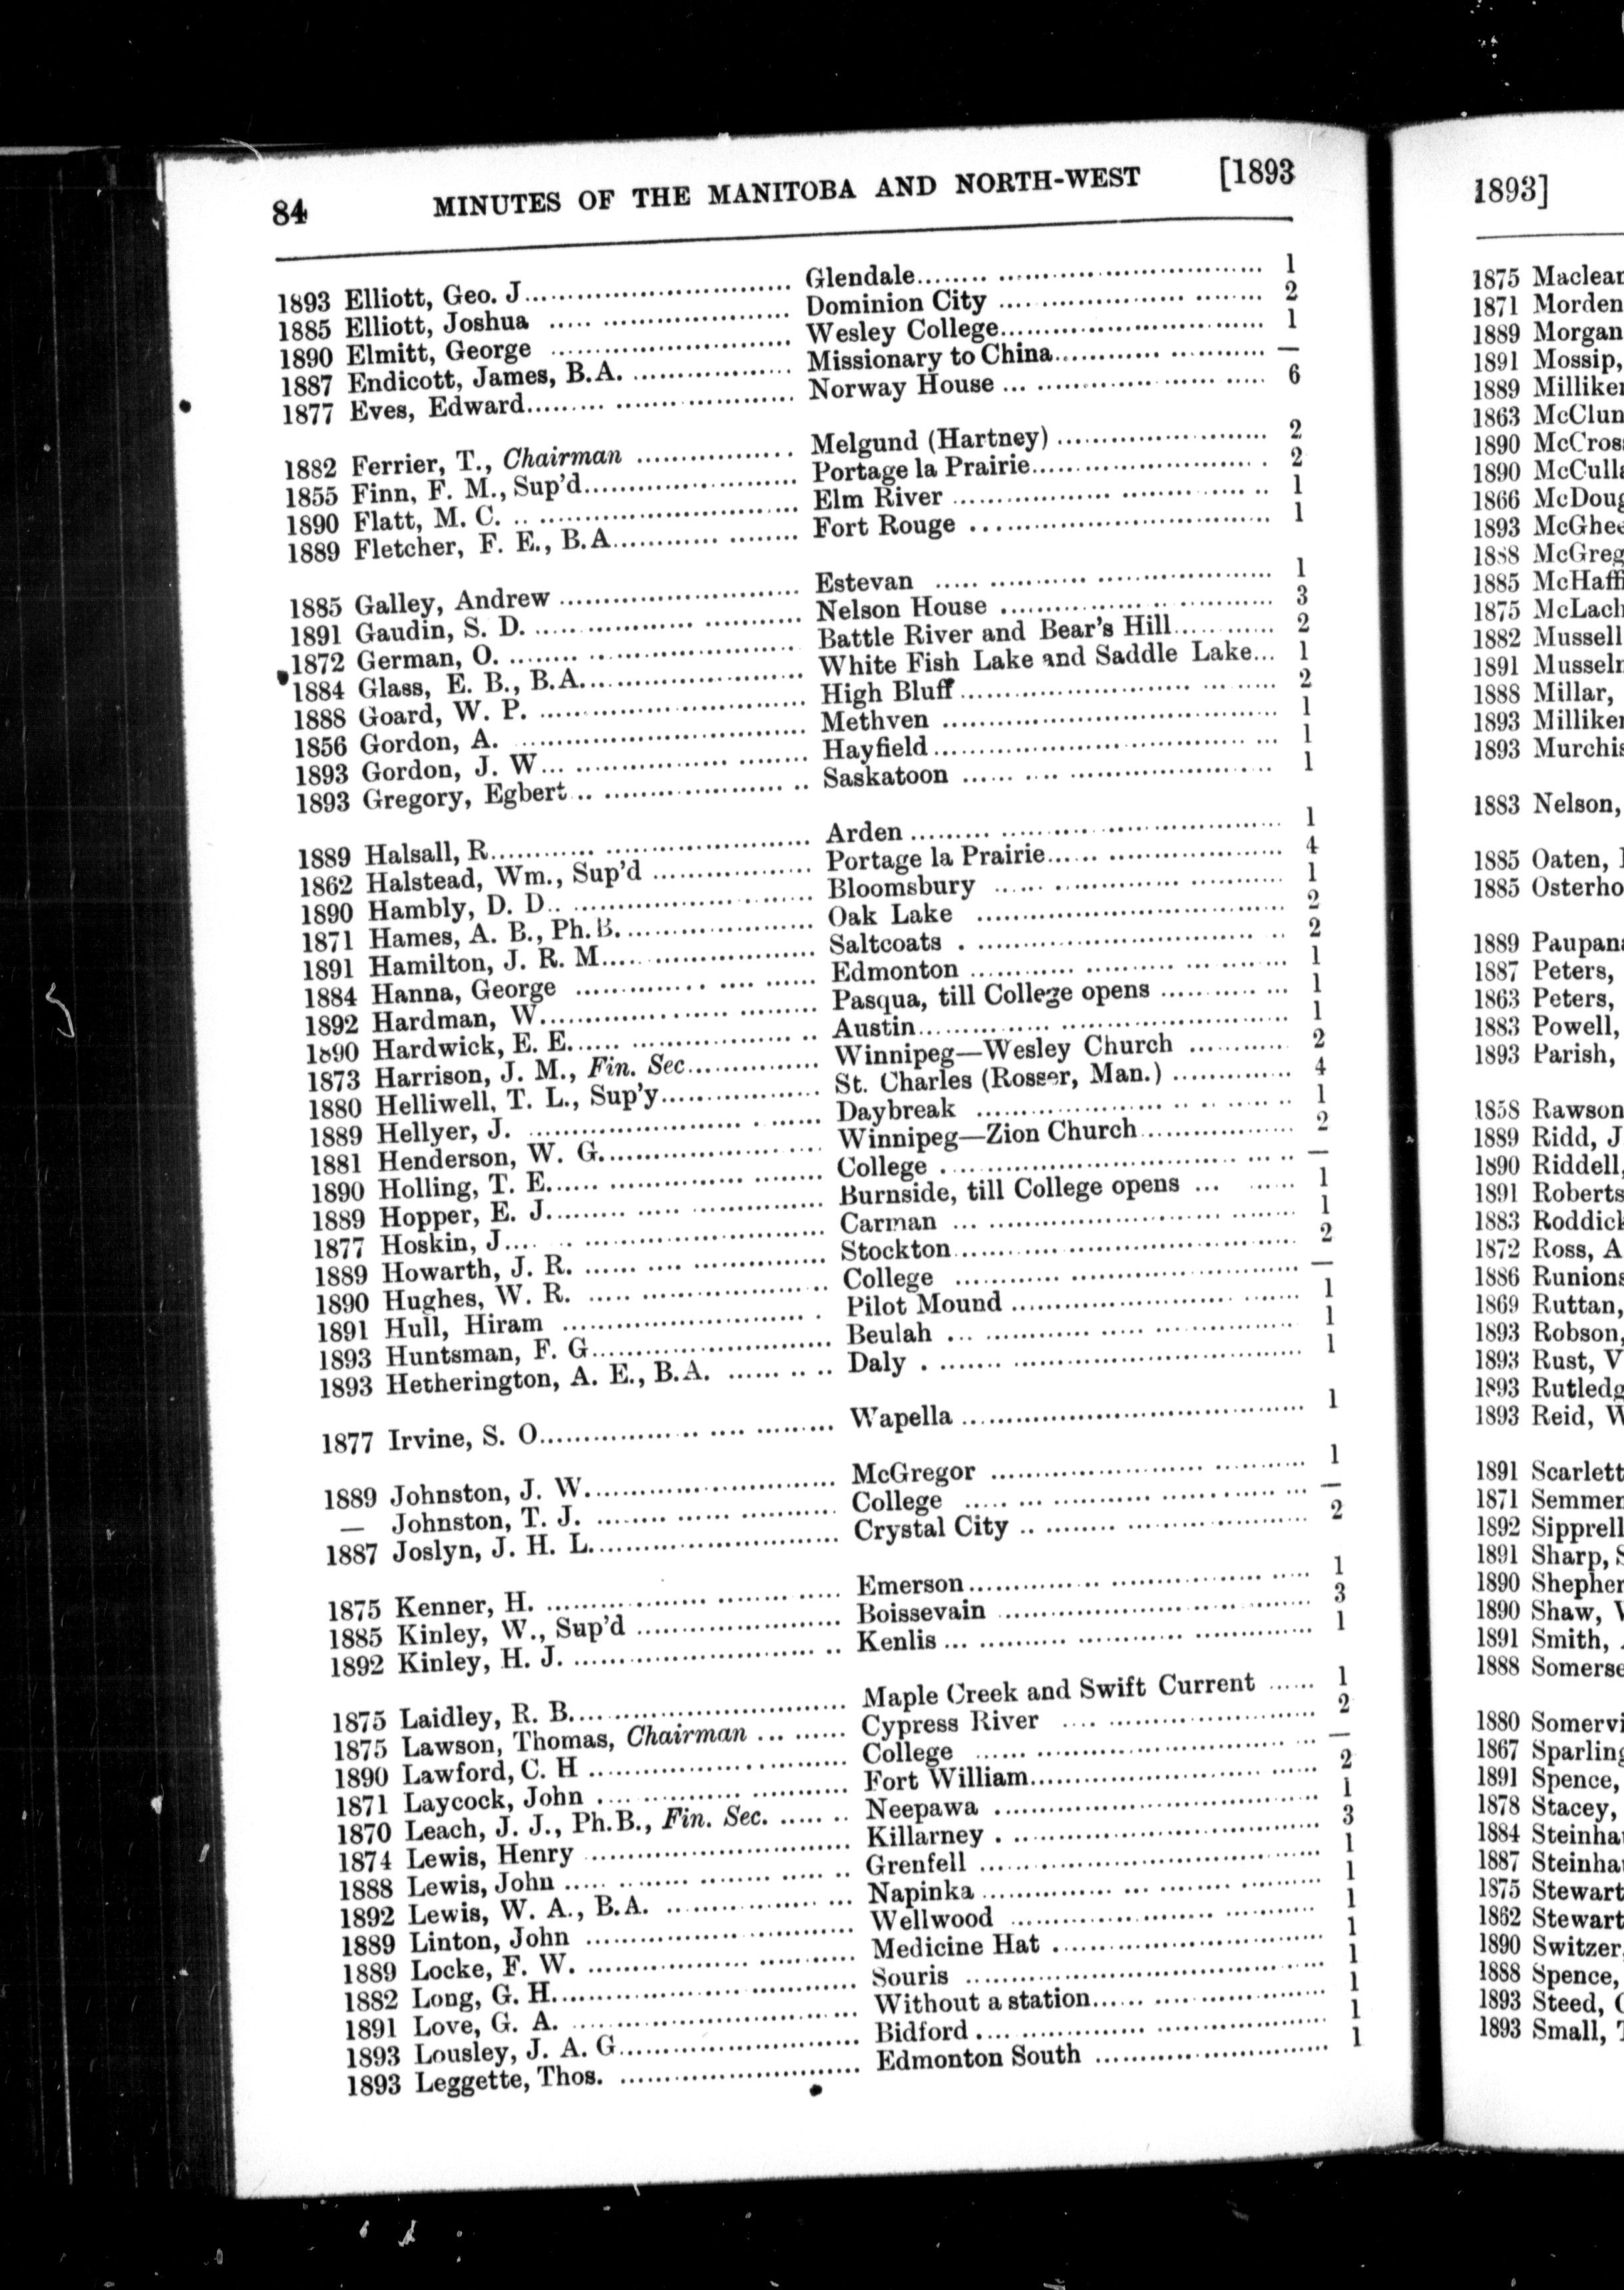 84 MINUTES OF THE MANITOBA AND NORTH-WEST [1893
1893 Elliott, Geo. J. Glendale 1
1885 Elliott, Joshua Dominion City 2
1890 Elmitt, George Wesley College 1
1887 Endicott, James, B.A. Missionary to China —
1877 Eves, Edward Norway House 6
1882 Ferrier, T., Chairman Melgund (Hartney) 2
1855 Finn, F. M., Sup'd Portage la Prairie 2
1890 Flatt, M. C. Elm River 1
1889 Fletcher, F. E., B.A. Fort Rouge 1
1885 Galley, Andrew Estevan 1
1891 Gaudin, S. D. Nelson House 3
1872 German, O. Battle River and Bear's Hill 2
1884 Glass, E. B., B.A. White Fish Lake and Saddle Lake 1
1888 Goard, W. P. High Bluff 2
1856 Gordon, A. Methven 1
1893 Gordon, J. W. Hayfield 1
1893 Gregory, Egbert Saskatoon 1
1889 Halsall, R. Arden 1
1862 Halstead, Wm., Sup'd Portage la Prairie 4
1890 Hambly, D. D. Bloomsbury 1
1871 Hames, A. B., Ph.B. Oak Lake 2
1891 Hamilton, J. R. M. Saltcoats 2
1884 Hanna, George Edmonton 1
1892 Hardman, W. Pasqua, till College opens 1
1890 Hardwick, E. E. Austin 1
1873 Harrison, J. M., Fin. Sec. Winnipeg—Wesley Church 2
1880 Helliwell, T. L., Sup'y St. Charles (Rosser, Man.) 4
1889 Hellyer, J. Daybreak 1
1881 Henderson, W. G. Winnipeg—Zion Church 2
1890 Holling, T. E. College —
1889 Hopper, E. J. Burnside, till College opens 1
1877 Hoskin, J. Carman 1
1889 Howarth, J. R. Stockton 2
1890 Hughes, W. R. College —
1891 Hull, Hiram Pilot Mound 1
1893 Huntsman, F. G. Beulah 1
1893 Hetherington, A. E., B.A. Daly 1
1877 Irvine, S. O. Wapella 1
1889 Johnston, J. W. McGregor 1
— Johnston, T. J. College —
1887 Joslyn, J. H. L. Crystal City 2
1875 Kenner, H. Emerson 1
1885 Kinley, W., Sup'd Boissevain 3
1892 Kinley, H. J. Kenlis 1
1875 Laidley, R. B. Maple Creek and Swift Current 1
1875 Lawson, Thomas, Chairman Cypress River 2
1890 Lawford, C. H College —
1871 Laycock, John Fort William 2
1870 Leach, J. J., Ph.B., Fin. Sec. Neepawa 1
1874 Lewis, Henry Killarney 3
1888 Lewis, John Grenfell 1
1892 Lewis, W. A., B.A. Napinka 1
1889 Linton, John Wellwood 1
1889 Locke, F. W. Medicine Hat 1
1882 Long, G. H. Souris 1
1891 Love, G. A. Without a station 1
1893 Lousley, J. A. G. Bidford 1
1893 Leggette, Thos. Edmonton South 1
1893]
1875 Maclean
1871 Morden
1889 Morgan
1891 Mossip,
1889
1863
1890
1890
1866
1893
1888
1885
1875
1882 Mussell
1891
1888 Millar,
1893
1893
1883 Nelson,
1885 Oaten,
1885
1889
1887 Peters,
1863 Peters,
1883 Powell,
1893 Parish,
1858 Rawson
1889 Ridd, J
1890 Riddell,
1891 Roberts
1883
1872 Ross, A
1886
1869 Ruttan,
1893 Robson,
1893 Rust, V
1893
1893 Reid, W
1891 Scarlett
1871
1892
1891 Sharp, S
1890
1890 Shaw,
1891 Smith,
1888
1880
1867
1891 Spence,
1878 Stacey,
1884
1887
1875 Stewart
1862 Stewart
1890 Switzer
1888 Spence,
1893 Steed,
1893 Small,